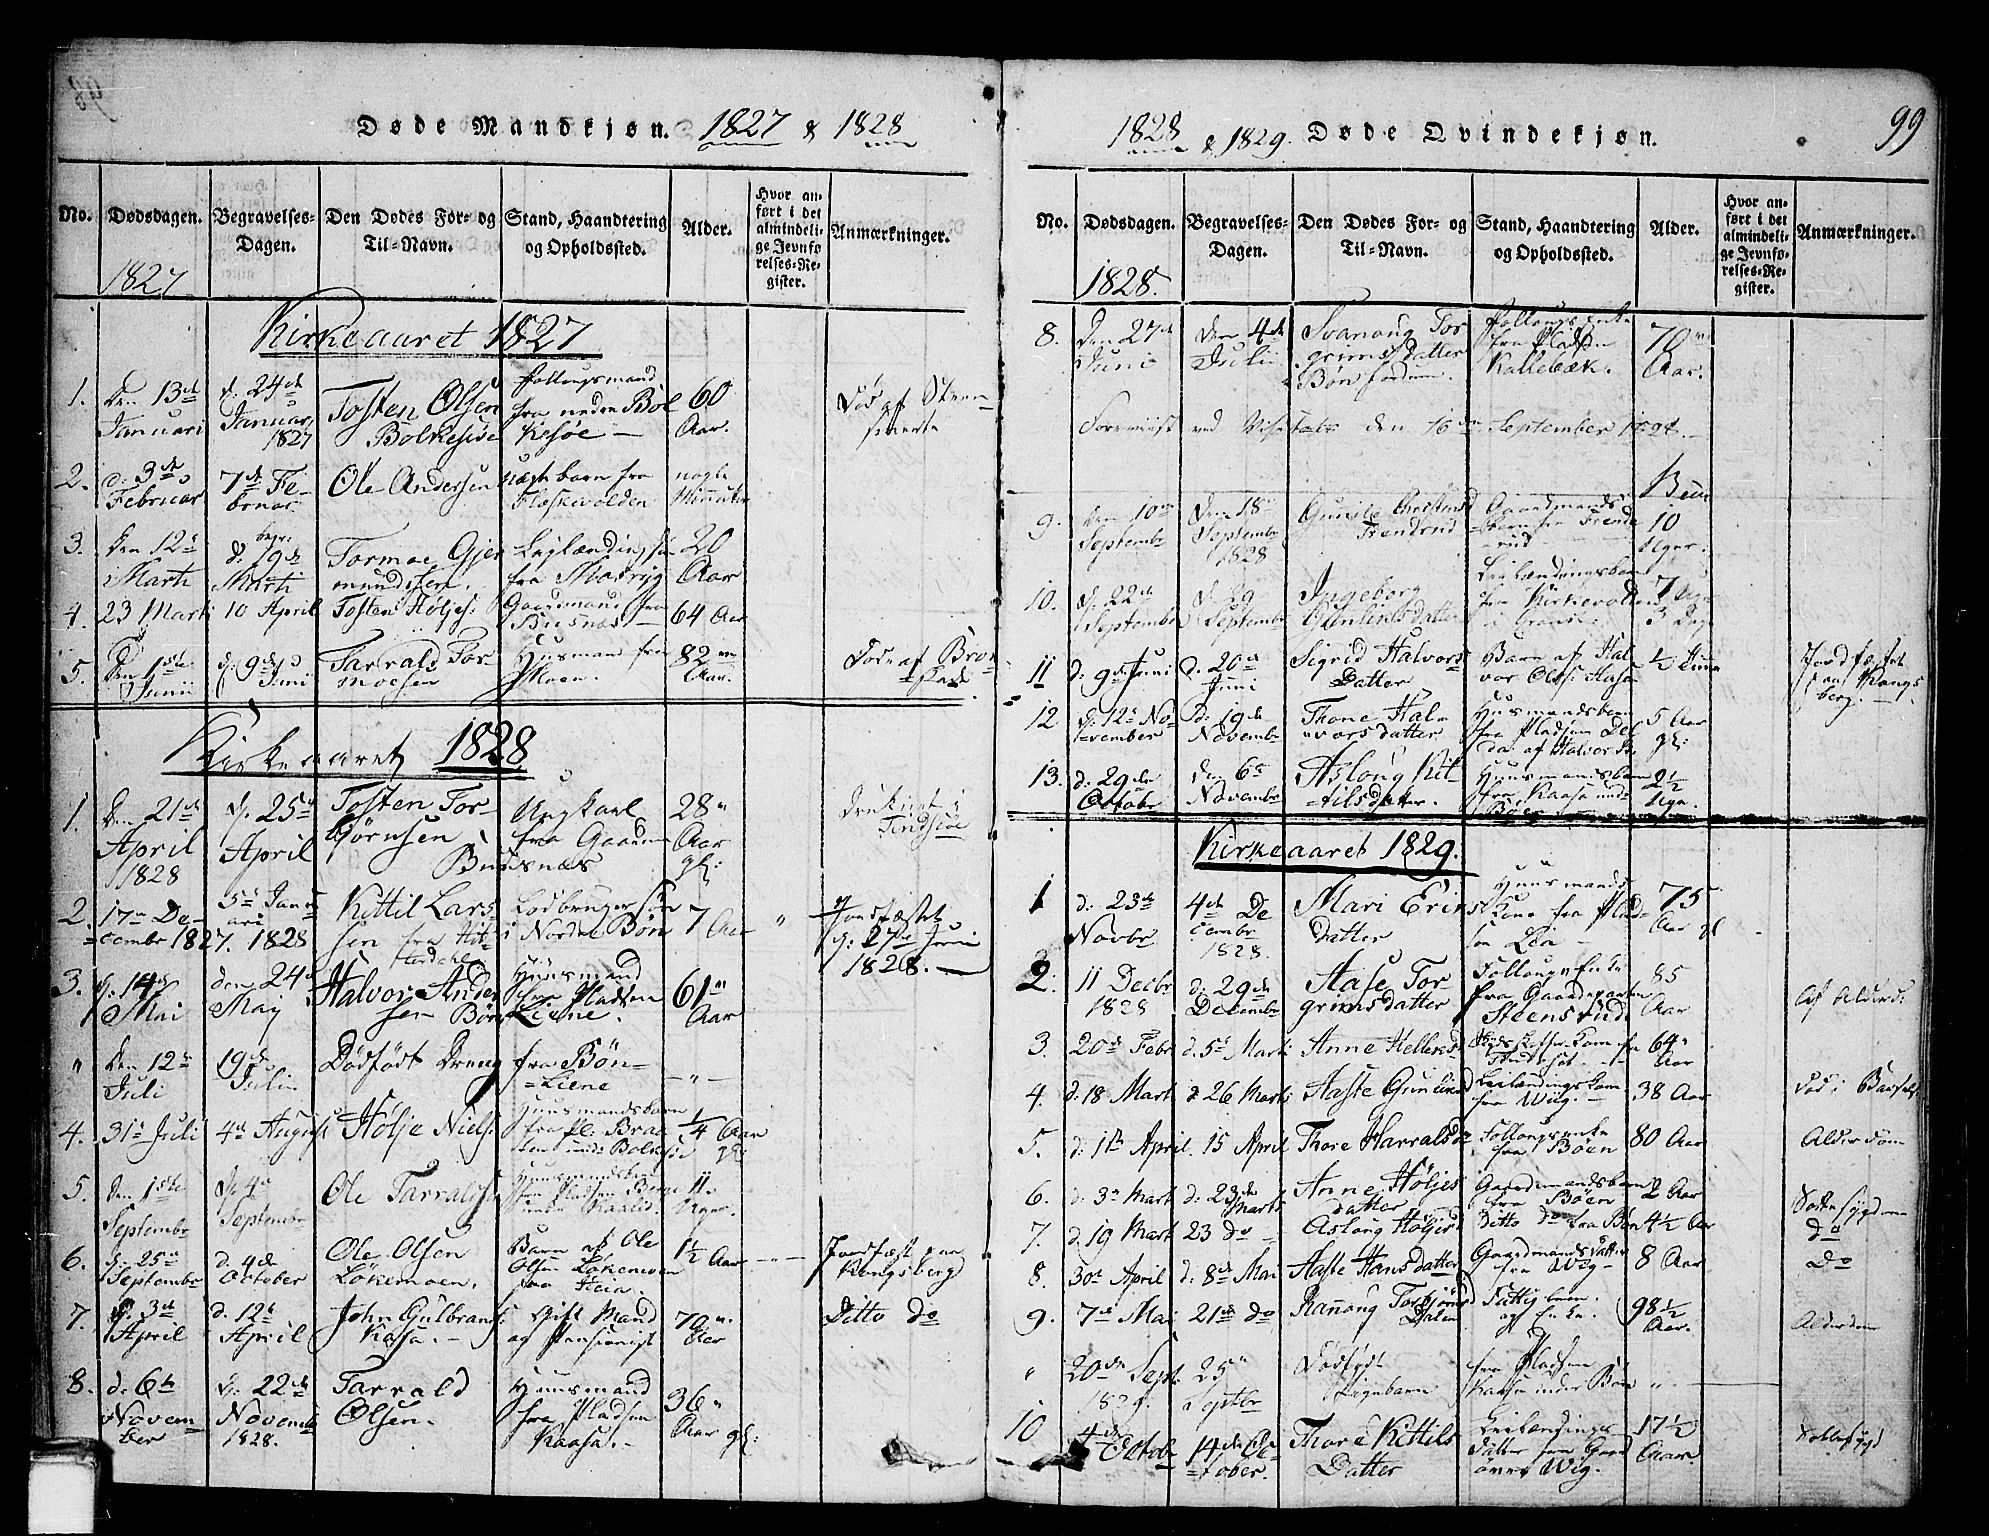 Døde Mandkjøn. 1827 & 1828
No. Dødsdagen. Begravelses-Dagen. Den Dødes For- og Til-Navn. Stand, Haandtering og Opholdssted. Alder. Hvor anført i det almindelige Jevnførelses-Register. Anmærkninger.
1827
Kirkeaaret 1827
1. Den 13de Januari d: 24de Januar 1827 Tosten Olsen Bolkesiøe Follougsmand fra nedre Bolkesøe 60 Aar. Død af Steensmerte
2. d: 3de Februar 7de Februar Ole Andersen uægte barn fra nogle Minnuter
3. Den 12te Marti begr: d: 19de Marti Tormoe Gjermundsen fra 20 Aar
4. 23 Marti 10 April Tosten Høljes: Gaardmand fra Busnæs 64 Aar
5. Den 1ste Junii d: 9de Junii Tarrald Tormoesen Husmand fra Moen. 82 Aar. Døde af
Kirkeaaret 1828
1. Den 21de April 1828 d: 25de April Tosten Torgjørnsen Busnæs Ungkarl fra Gaarden 28 Aar gl: Druknet i Tindsiøe
2. 17de Decembr 1827. 5te Januari 1828 Kittil Larsen fra Hitterdahl i Nordre Bøn 7 Aar " Jordfæstet d: 27de Juni 1828.
3. d: 14de Mai den 24de Maj Halvor Andersen Bøn Huusmand fra Pladsen Liene. 61 Aar
" Den 12te Juli 19de Julii Dødfödt Dreng fra Bøn-Liene — " —
4. 31te Juli 4de August Høljé Niels: Huusmandsbarn fra Pl: Braaten under Bolkesiø 1/4 Aar gl:
5. Den 1ste Septembr d: 4de Septembr Ole Tarralds: Huusmandsbarn fra Pladsen 11 Uger.
6. d: 25de Septembr d: 4de October Ole Olsen Løkemoen. Barn af Ole Olsen Løkemoen fra Heia. 1½ Aar Jordfæst paa Kongsberg
7. d: 3de April d. 12te April John Gulbrands: Kaasa. Gift Mand og Pensionist 70 Aar Ditto do
8. d: 6te November d: 22de Novemb: 1828. Tarrald Olsen. Huusmand fra Pladsen Kaasa. 36 Aar gl:
1828 & 1829. Døde Qvindekjøn. 99
No. Dødsdagen. Begravelses-Dagen. Den Dødes For- og Til-Navn. Stand, Haandtering og Opholdssted. Alder. Hvor anført i det almindelige Jevnførelses-Register. Anmærkninger.
1828.
8. Den 27de Juni Den 4de Julii Svanaug Torgrimsdatter Bøn fordum. Follougs Enke fra Pladsen Kallebæk. 70 Aar.
Foreviist ved Visitats den 16de September 1828.
9. Den 10de Septembr Den 18de Septembr 1828 Gunild Christensd Trendrud Gaardmandsbarn fra Trenderud 10 Uger.
10. d: 22de Septembr d: 29 Septembr Ingeborg Gunleiksdatter Leilændingsbarn fra Kirkevolden i Gransh. 7 Ug: 3 Dage
11 d: 9de Juni d: 20de Juni Sigrid Halvors Datter Barn af Halvor Ols: Haasa ½ Time Jordfæstet paa Kongsberg.
12 d: 12te November d: 19de Novembr Thone Halvorsdatter Huusmandsbarn fra Pladsen af Halvor 5 Aar gl:
13. d: 29de Octobr den 6te Novembr Aslong Kittilsdatter. Huusmandsbarn fra Kaasa under Bøen 2½ Uge.
Kirkeaaret 1829.
1 d: 23de Novbr 4de Decembr 1828. Mari Erichsdatter Huusmands Kone fra Pladsen Lien 75 Aar gl
2. 11 Decbr 1828 d: 29de Decembr Aase Torgrimsdatter Follougs Enke fra Gaardeparten Steensrud 85 Aar Af Alderd:
3. 20de Febr d. 5te Marti Anne Helleksd Kone fra 64 Aar
4. d: 18 Mart d: 26 Marti Aaste Gunleiksd Leilændings Kone fra Wiig. 38 Aar Død i Barsels
5. d: 1ste April 15 April Thore Harralsd: Follougsenke fra Bøen 80 Aar Alderdom
6. d: 3de Mart d: 23de Marts Anne Høljesdatter Gaardmandsbarn fra Bøen 2 Aar Sottesygdom
7. d: 19 Mart 23 do Aslaug Høljesd Ditto do fra Bøn 4½ Aar do
8. 30te April d: 8de Mai Aaste Hansdatter Gaardmands Datter fra Wig 8 Aar Do
9. 7de Mai 21de do Rannong Torbjørnsd Dalen Fattiglem og Enke. 98½ Aar. Alderdom
" 20de Sept. 1829. 25 Septbr Dødfødt Pigebarn fra Pladsen Kaasa under Bøen "
10 4de Octob: 14de October. Thore Kittils Datter Leilændings Datter fra Gaard øvre Wiig. 17½ Aar. Sottesygd